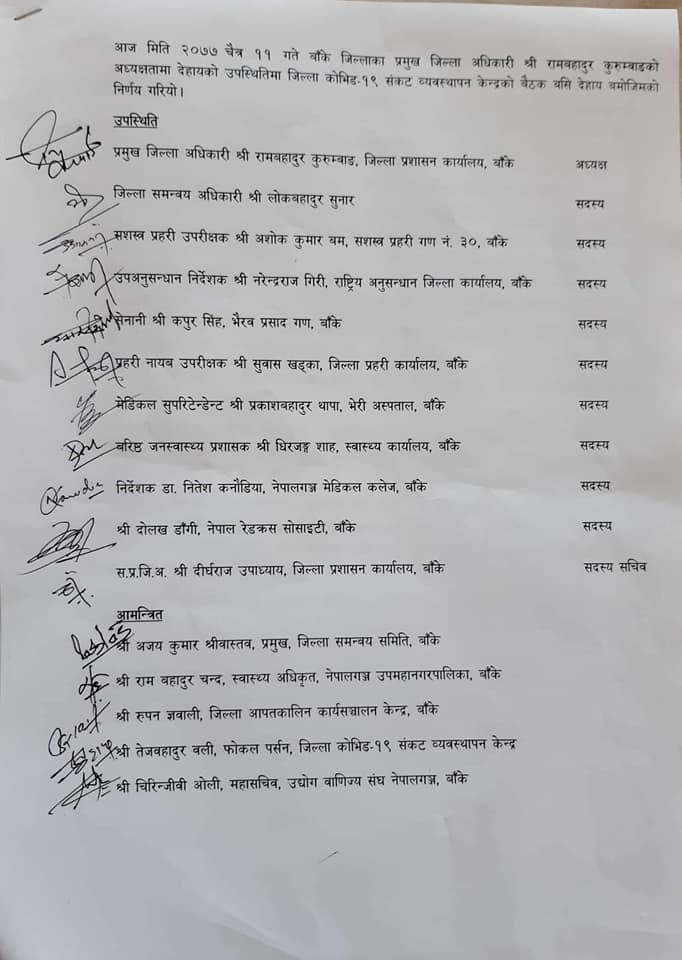 आज मिति २०७७ चैत्र ११ गते बाँके जिल्लाका प्रमुख जिल्ला अधिकारी श्री रामबहादुर कुरुम्बाङको
अध्यक्षतामा देहायको उपस्थितिमा जिल्ला कोभिड-१९ संकट व्यवस्थापन केन्द्रको बैठक बसि देहाय बमोजिमको
निर्णय गरियो।
उपस्थिति
प्रमुख जिल्ला अधिकारी श्री रामबहादुर कुरुम्बाङ, जिल्ला प्रशासन कार्यालय, बाँके अध्यक्ष
जिल्ला समन्वय अधिकारी श्री लोकबहादुर सुनार सदस्य
सशस्त्र प्रहरी उपरीक्षक श्री अशोक कुमार बम, सशस्त्र प्रहरी गण नं. ३०, बाँके सदस्य
उपअनुसन्धान निर्देशक श्री नरेन्द्रराज गिरी, राष्ट्रिय अनुसन्धान जिल्ला कार्यालय, बाँके सदस्य
सेनानी श्री कपुर सिंह, भैरव प्रसाद गण, बाँके सदस्य
प्रहरी नायब उपरीक्षक श्री सुवास खड्का, जिल्ला प्रहरी कार्यालय, बाँके सदस्य
मेडिकल सुपरिटेन्डेन्ट श्री प्रकाशबहादुर थापा, भेरी अस्पताल, बाँके सदस्य
बरिष्ठ जनस्वास्थ्य प्रशासक श्री धिरजङ्ग शाह, स्वास्थ्य कार्यालय, बाँके सदस्य
निर्देशक डा. नितेश कनौडिया, नेपालगञ्ज मेडिकल कलेज, बाँके सदस्य
श्री दोलख डाँगी, नेपाल रेडक्रस सोसाइटी, बाँके सदस्य
स.प्र.जि.अ. श्री दीर्घराज उपाध्याय, जिल्ला प्रशासन कार्यालय, बाँके सदस्य सचिव
आमन्त्रित
श्री अजय कुमार श्रीवास्तव, प्रमुख, जिल्ला समन्वय समिति, बाँके
श्री राम बहादुर चन्द, स्वास्थ्य अधिकृत, नेपालगञ्ज उपमहानगरपालिका, बाँके
श्री रुपन ज्ञवाली, जिल्ला आपतकालिन कार्यसञ्चालन केन्द्र, बाँके
श्री तेजबहादुर वली, फोकल पर्सन, जिल्ला कोभिड-१९ संकट व्यवस्थापन केन्द्र
श्री चिरिन्जीवी ओली, महासचिव, उद्योग वाणिज्य संघ नेपालगञ्ज, बाँके